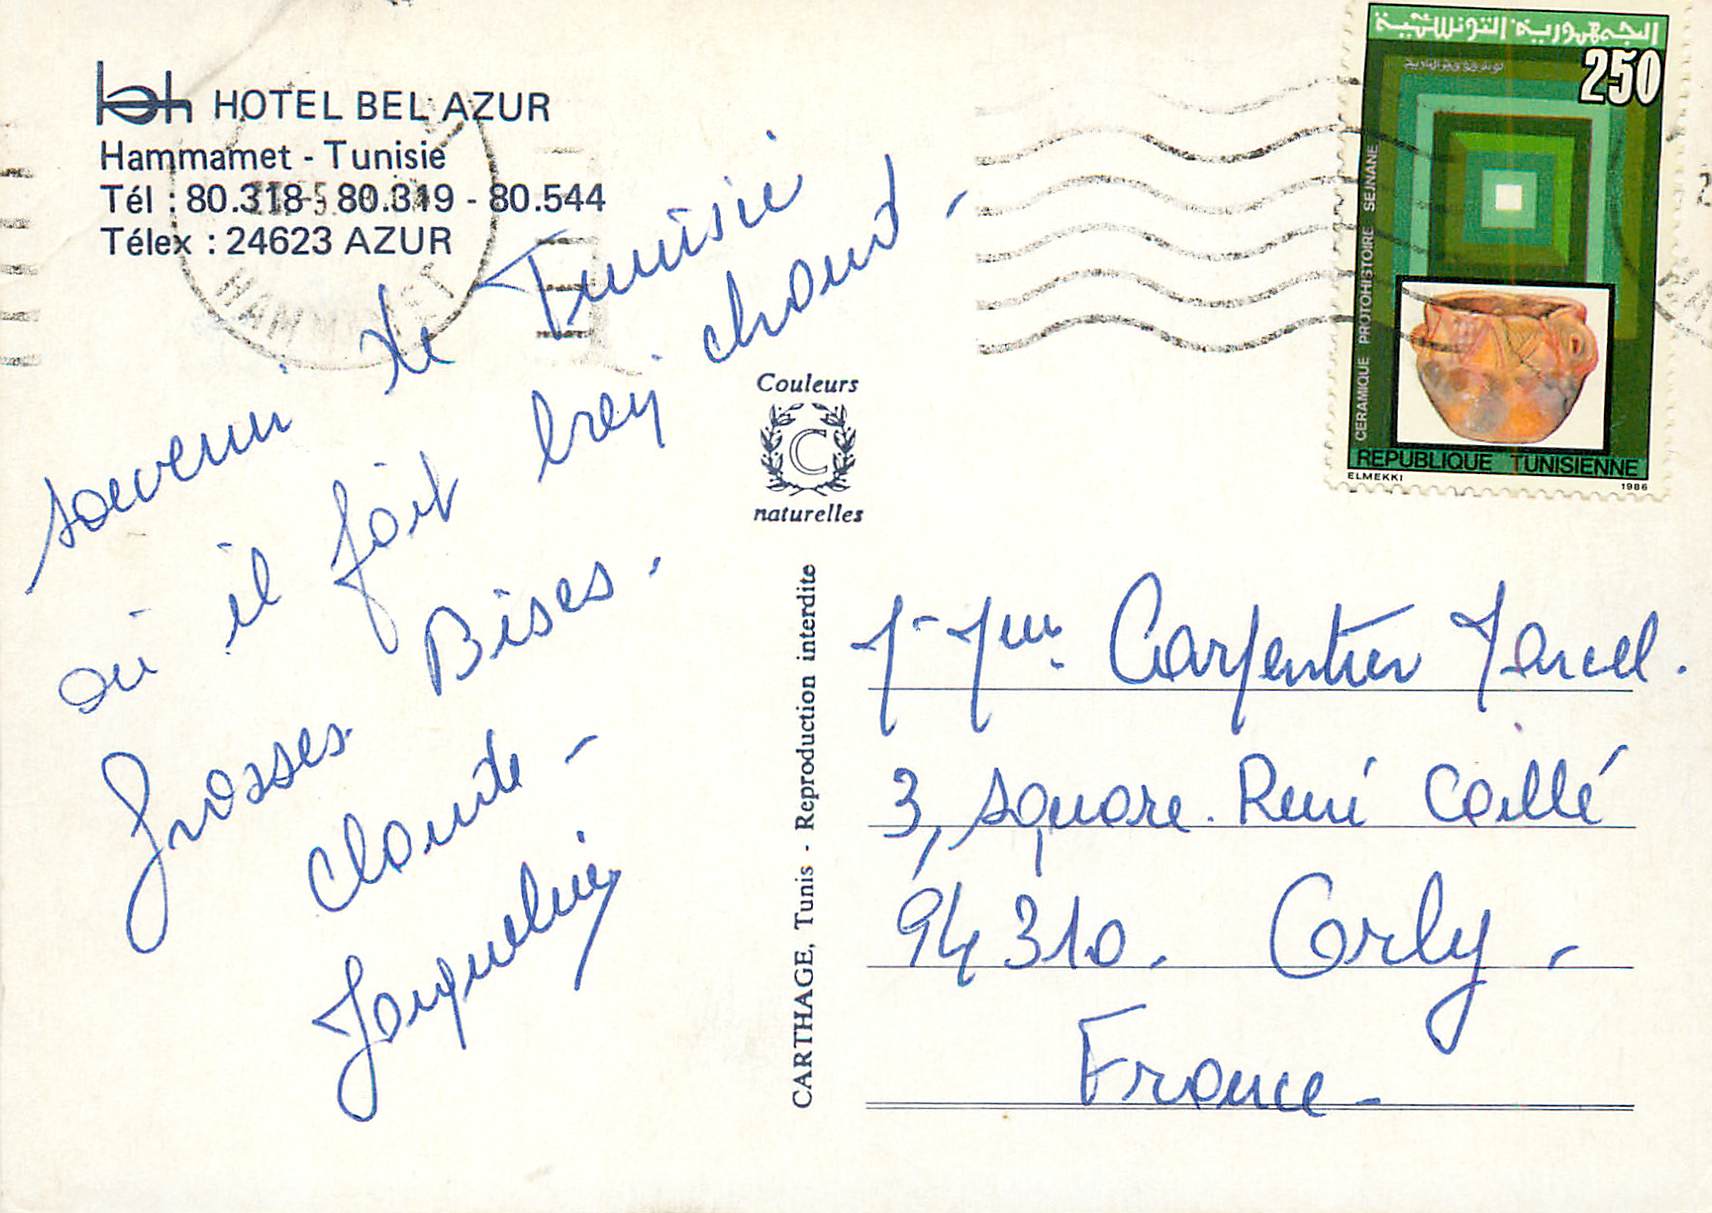 HOTEL BEL AZUR
Hammamet - Tunisie
Tél : 80.318 - 80.319 - 80.544
Télex : 24623 AZUR
souvenir de Tunisie
où il fait très chaud.
Grosses Bises.
Claude -
Jacqueline
Couleurs
C
naturelles
CARTHAGE, Tunis - Reproduction interdite
الجمهورية التونسية
250
CERAMIQUE PROTOHISTOIRE SEJNANE
REPUBLIQUE TUNISIENNE
ELMEKKI 1986
HAMMAMET
M-Mme. Carpentier Marcel.
3, square René Caillé
94310. Orly -
France -